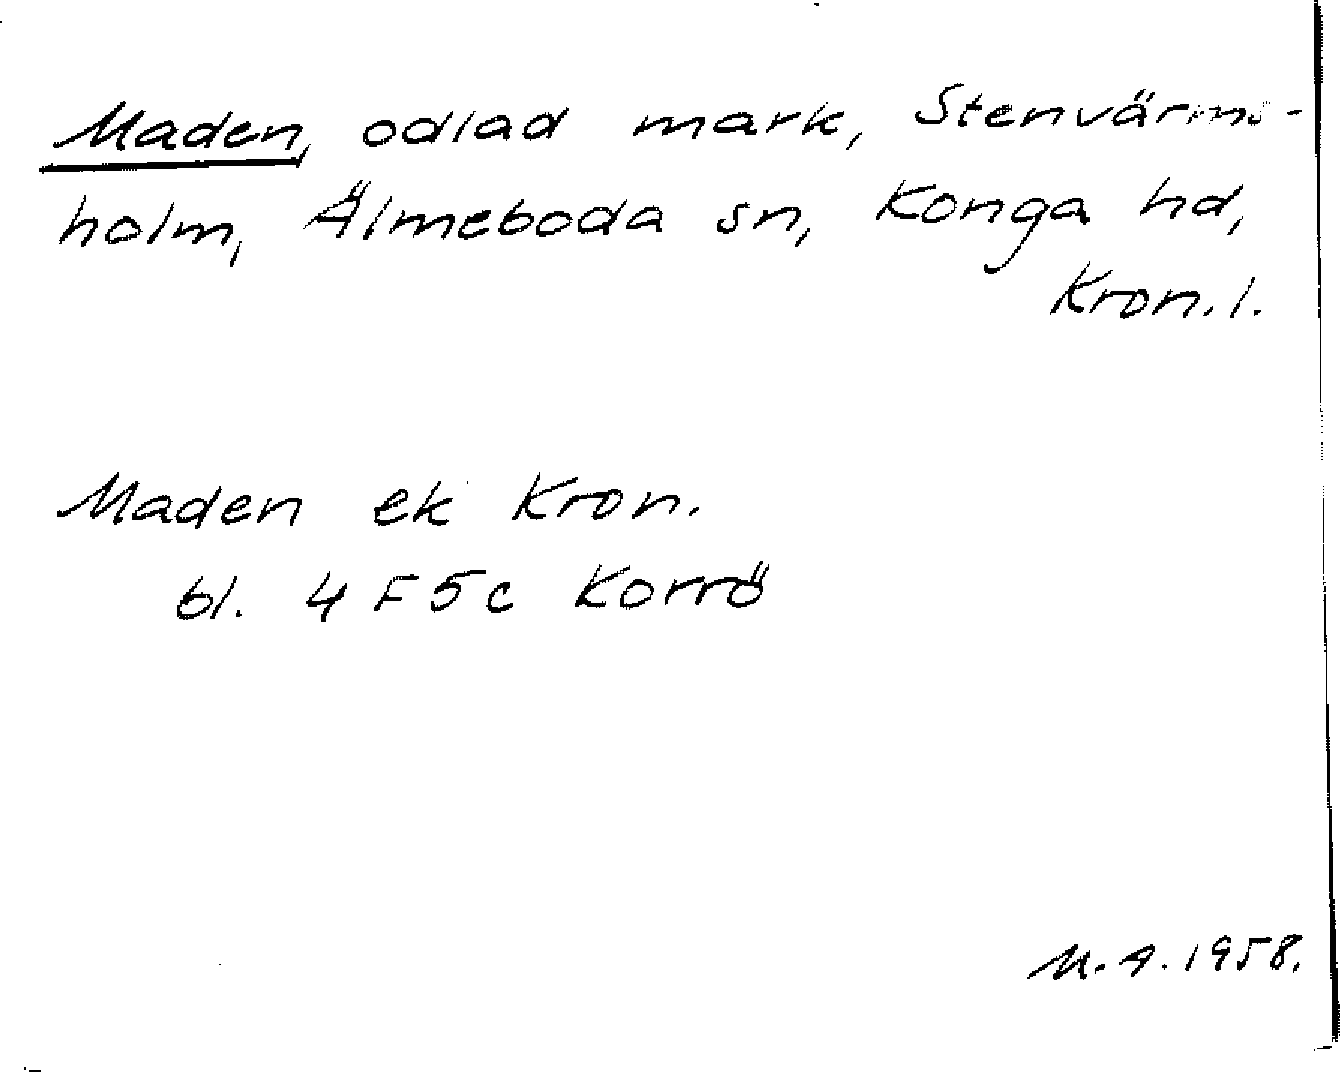 Maden, odlad mark, Stenvärms-
holm, Älmeboda sn, Konga hd,
Kron.l.
Maden ek Kron.
bl. 4 F 5 c Korrö
M.A. 1958.